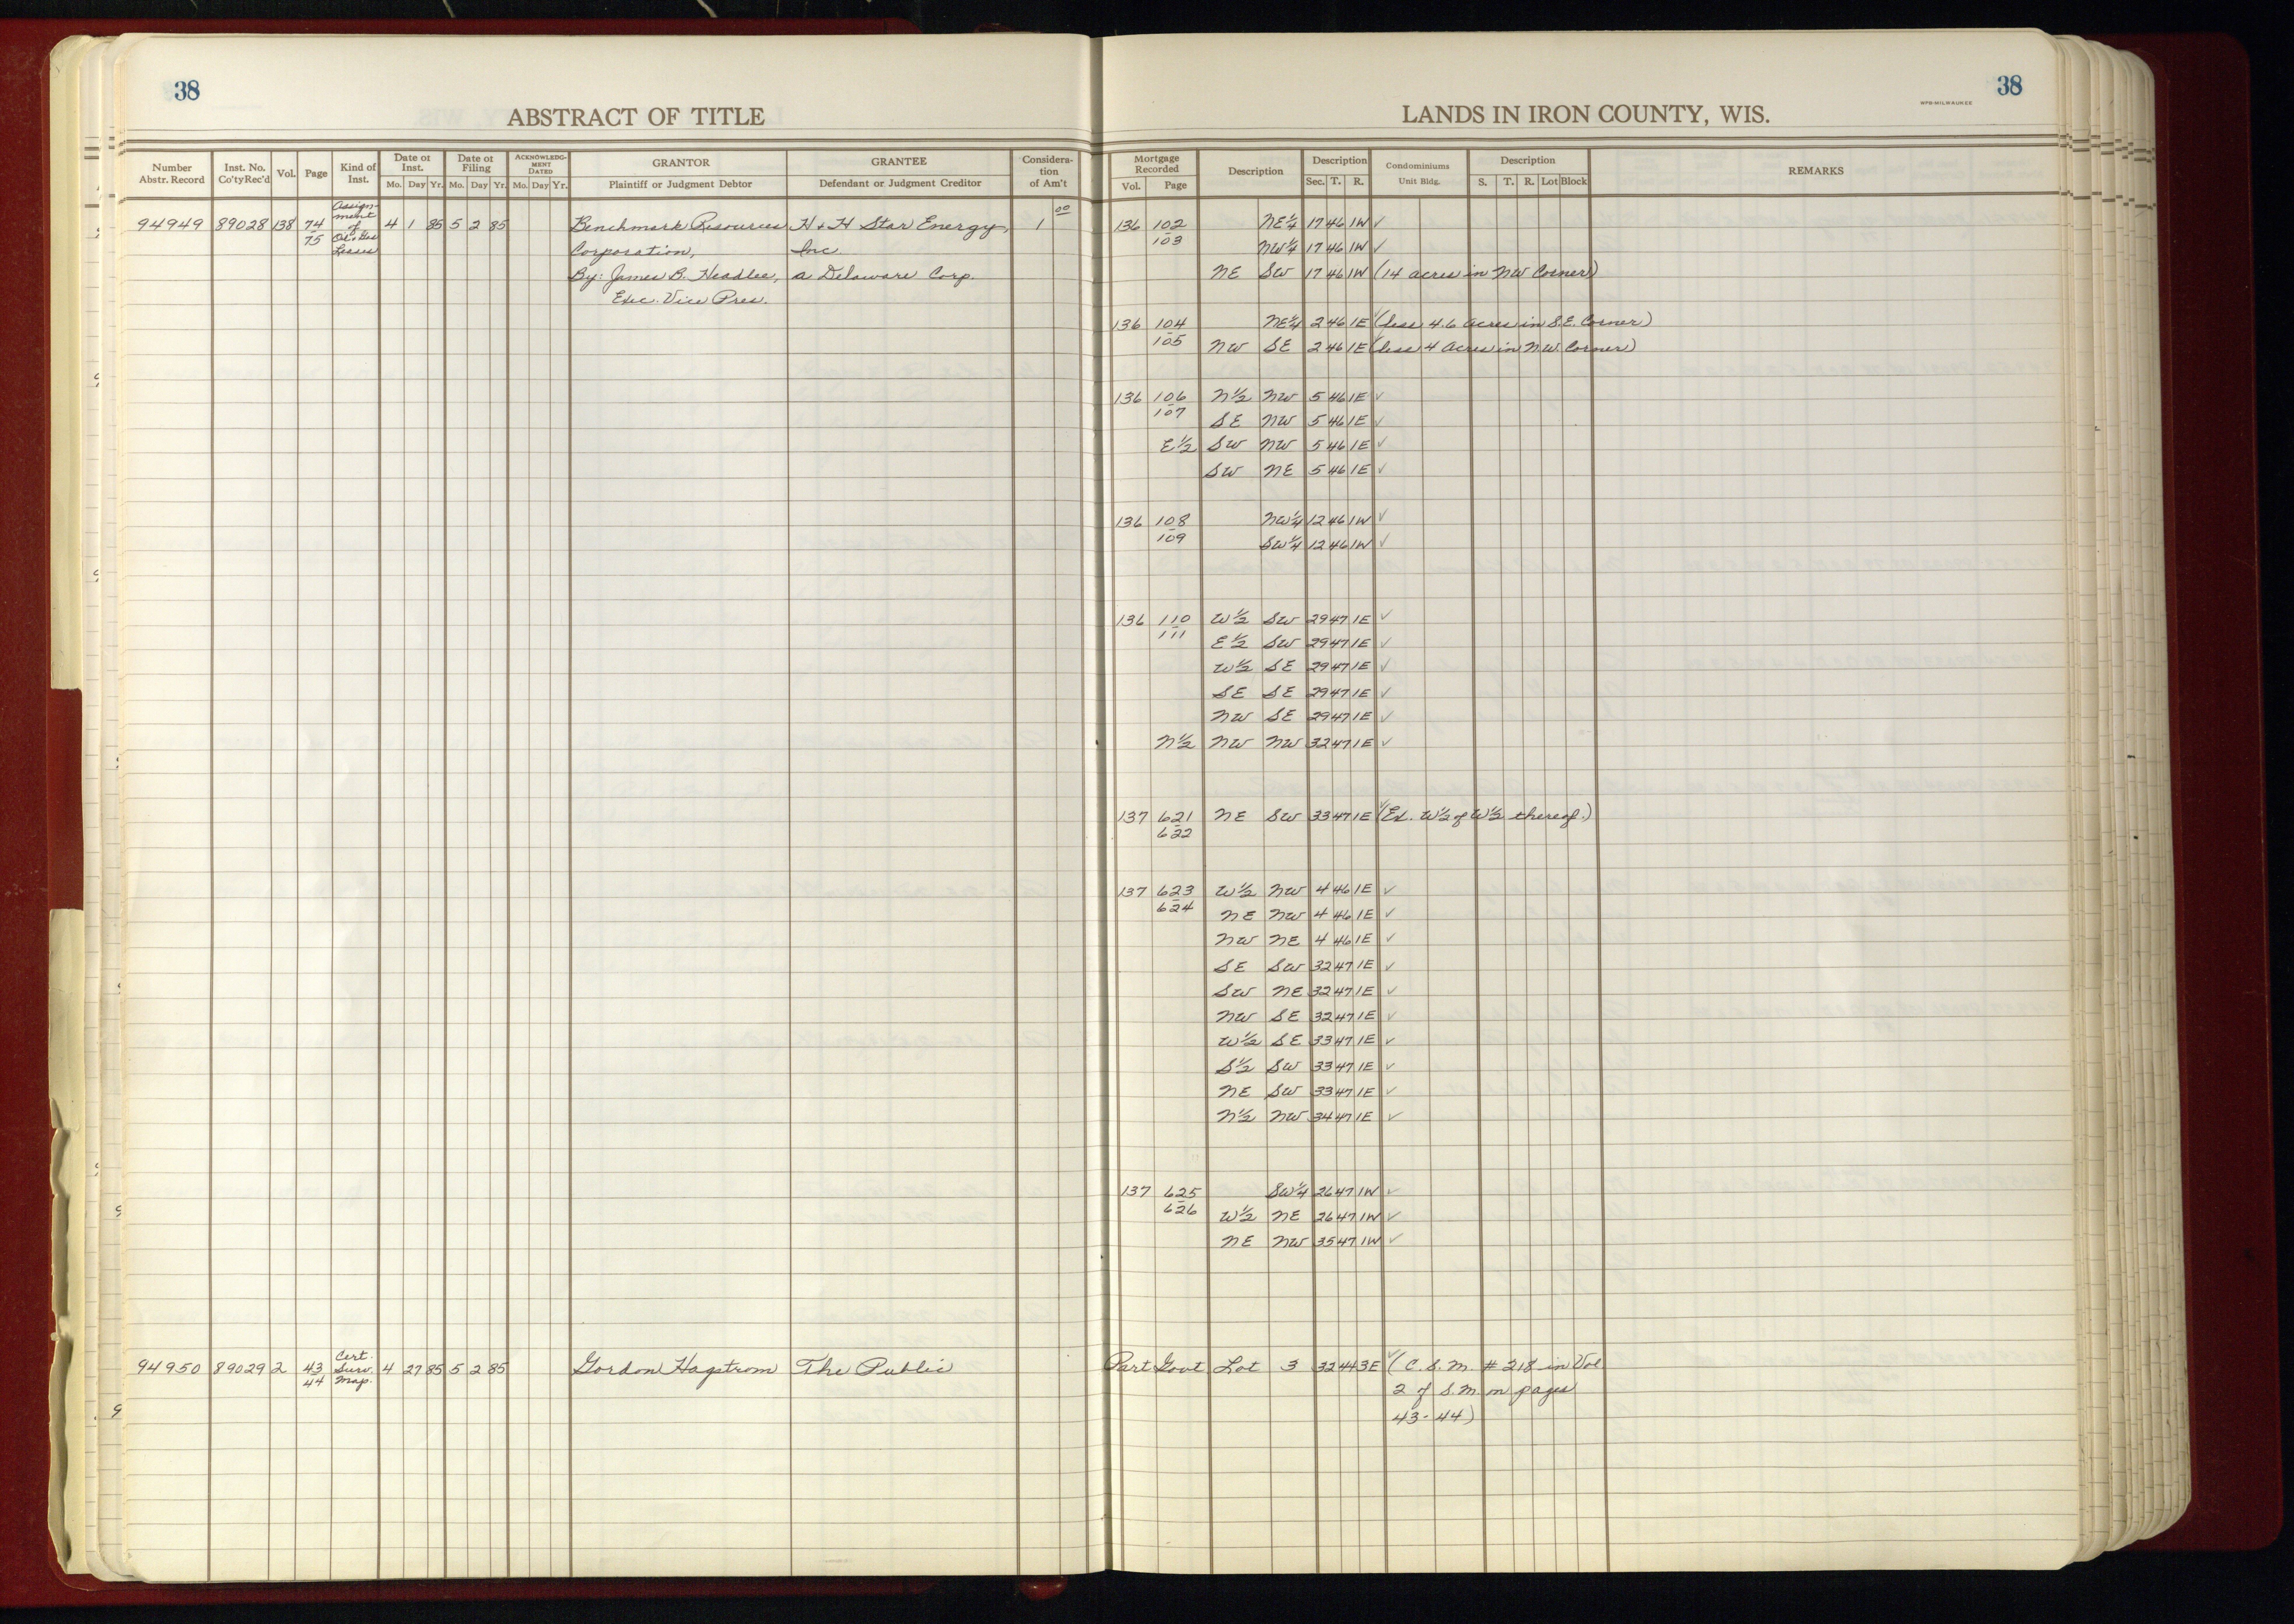 38
ABSTRACT OF TITLE
Number Abstr. Record
Inst. No. Co'ty Rec'd
Vol.
Page
Kind of Inst.
Date of Inst.
Mo. Day Yr.
Date of Filing
Mo. Day Yr.
ACKNOWLEDGMENT DATED
Mo. Day Yr.
GRANTOR
Plaintiff or Judgment Debtor
GRANTEE
Defendant or Judgment Creditor
Consideration of Am't
94949 89028 138 74-75 Assignment of Oil & Gas Leases 4 1 85 5 2 85 Benchmark Resources H & H Star Energy, 1 00
Corporation, Inc.
By: James B. Headlee, a Delaware Corp.
Exec. Vice Pres.
94950 89029 2 43-44 Cert. Surv. Map. 4 27 85 5 2 85 Gordon Hagstrom The Public
38
WPB-MILWAUKEE
LANDS IN IRON COUNTY, WIS.
Mortgage Recorded
Vol. Page
Description
Description
Sec. T. R.
Condominiums
Unit Bldg.
Description
S. T. R. Lot Block
REMARKS
136 102-103 NE 1/4 17 46 1W ✓
NW 1/4 17 46 1W ✓
NE SW 17 46 1W (14 acres in NW Corner)
136 104-105 NE 1/4 2 46 1E ✓ (less 4.6 acres in S.E. Corner)
NW SE 2 46 1E (less 4 acres in N.W. Corner)
136 106-107 N 1/2 NW 5 46 1E ✓
SE NW 5 46 1E ✓
E 1/2 SW NW 5 46 1E ✓
SW NE 5 46 1E ✓
136 108-109 NW 1/4 12 46 1W ✓
SW 1/4 12 46 1W ✓
136 110-111 W 1/2 SW 29 47 1E ✓
E 1/2 SW 29 47 1E ✓
W 1/2 SE 29 47 1E ✓
SE SE 29 47 1E ✓
NW SE 29 47 1E ✓
N 1/2 NW NW 32 47 1E ✓
137 621-622 NE SW 33 47 1E ✓ (Ex. W 1/2 of W 1/2 thereof.)
137 623-624 W 1/2 NW 4 46 1E ✓
NE NW 4 46 1E ✓
NW NE 4 46 1E ✓
SE SW 32 47 1E ✓
SW NE 32 47 1E ✓
NW SE 32 47 1E ✓
W 1/2 SE 33 47 1E ✓
S 1/2 SW 33 47 1E ✓
NE SW 33 47 1E ✓
N 1/2 NW 34 47 1E ✓
137 625-626 SW 1/4 26 47 1W ✓
W 1/2 NE 26 47 1W ✓
NE NW 35 47 1W ✓
Part Govt Lot 3 32 44 3E ✓ (C.S.M. # 218 in Vol
2 of S.M. on pages
43-44)